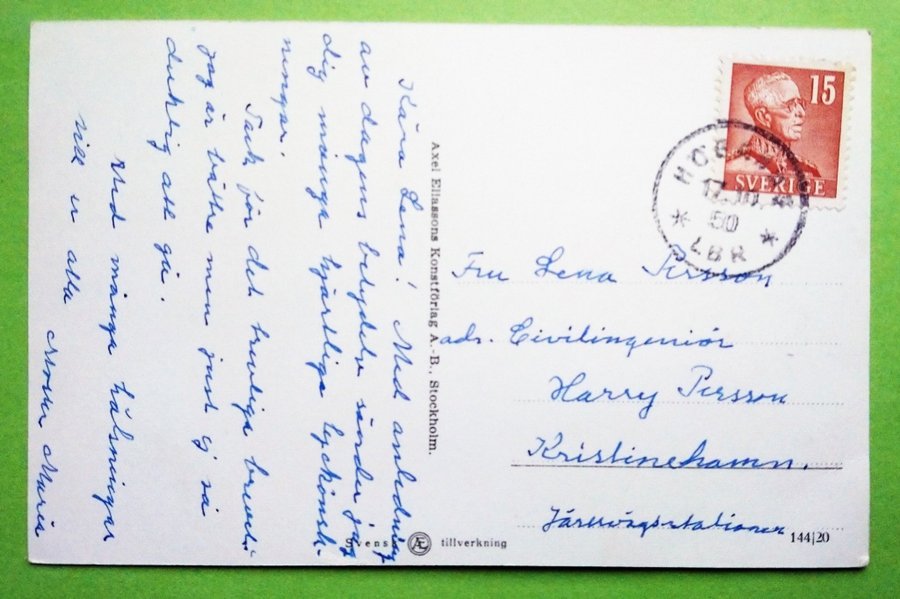 Kära Lena! Med anledning
av dagens betydelse sänder jag
dig många hjärtliga lyckönsk-
ningar.
Tack för det trevliga brevet.
Jag är bättre men just ej så
duktig att gå.
Med många hälsningar
till er alla Moster Maria
Axel Eliassons Konstförlag A.-B., Stockholm.
Svensk Æ tillverkning
15
SVERIGE
50
LBR
Fru Lena Persson
adr. Civilingeniör
Harry Persson
Kristinehamn.
Järnvägsstationen
144|20